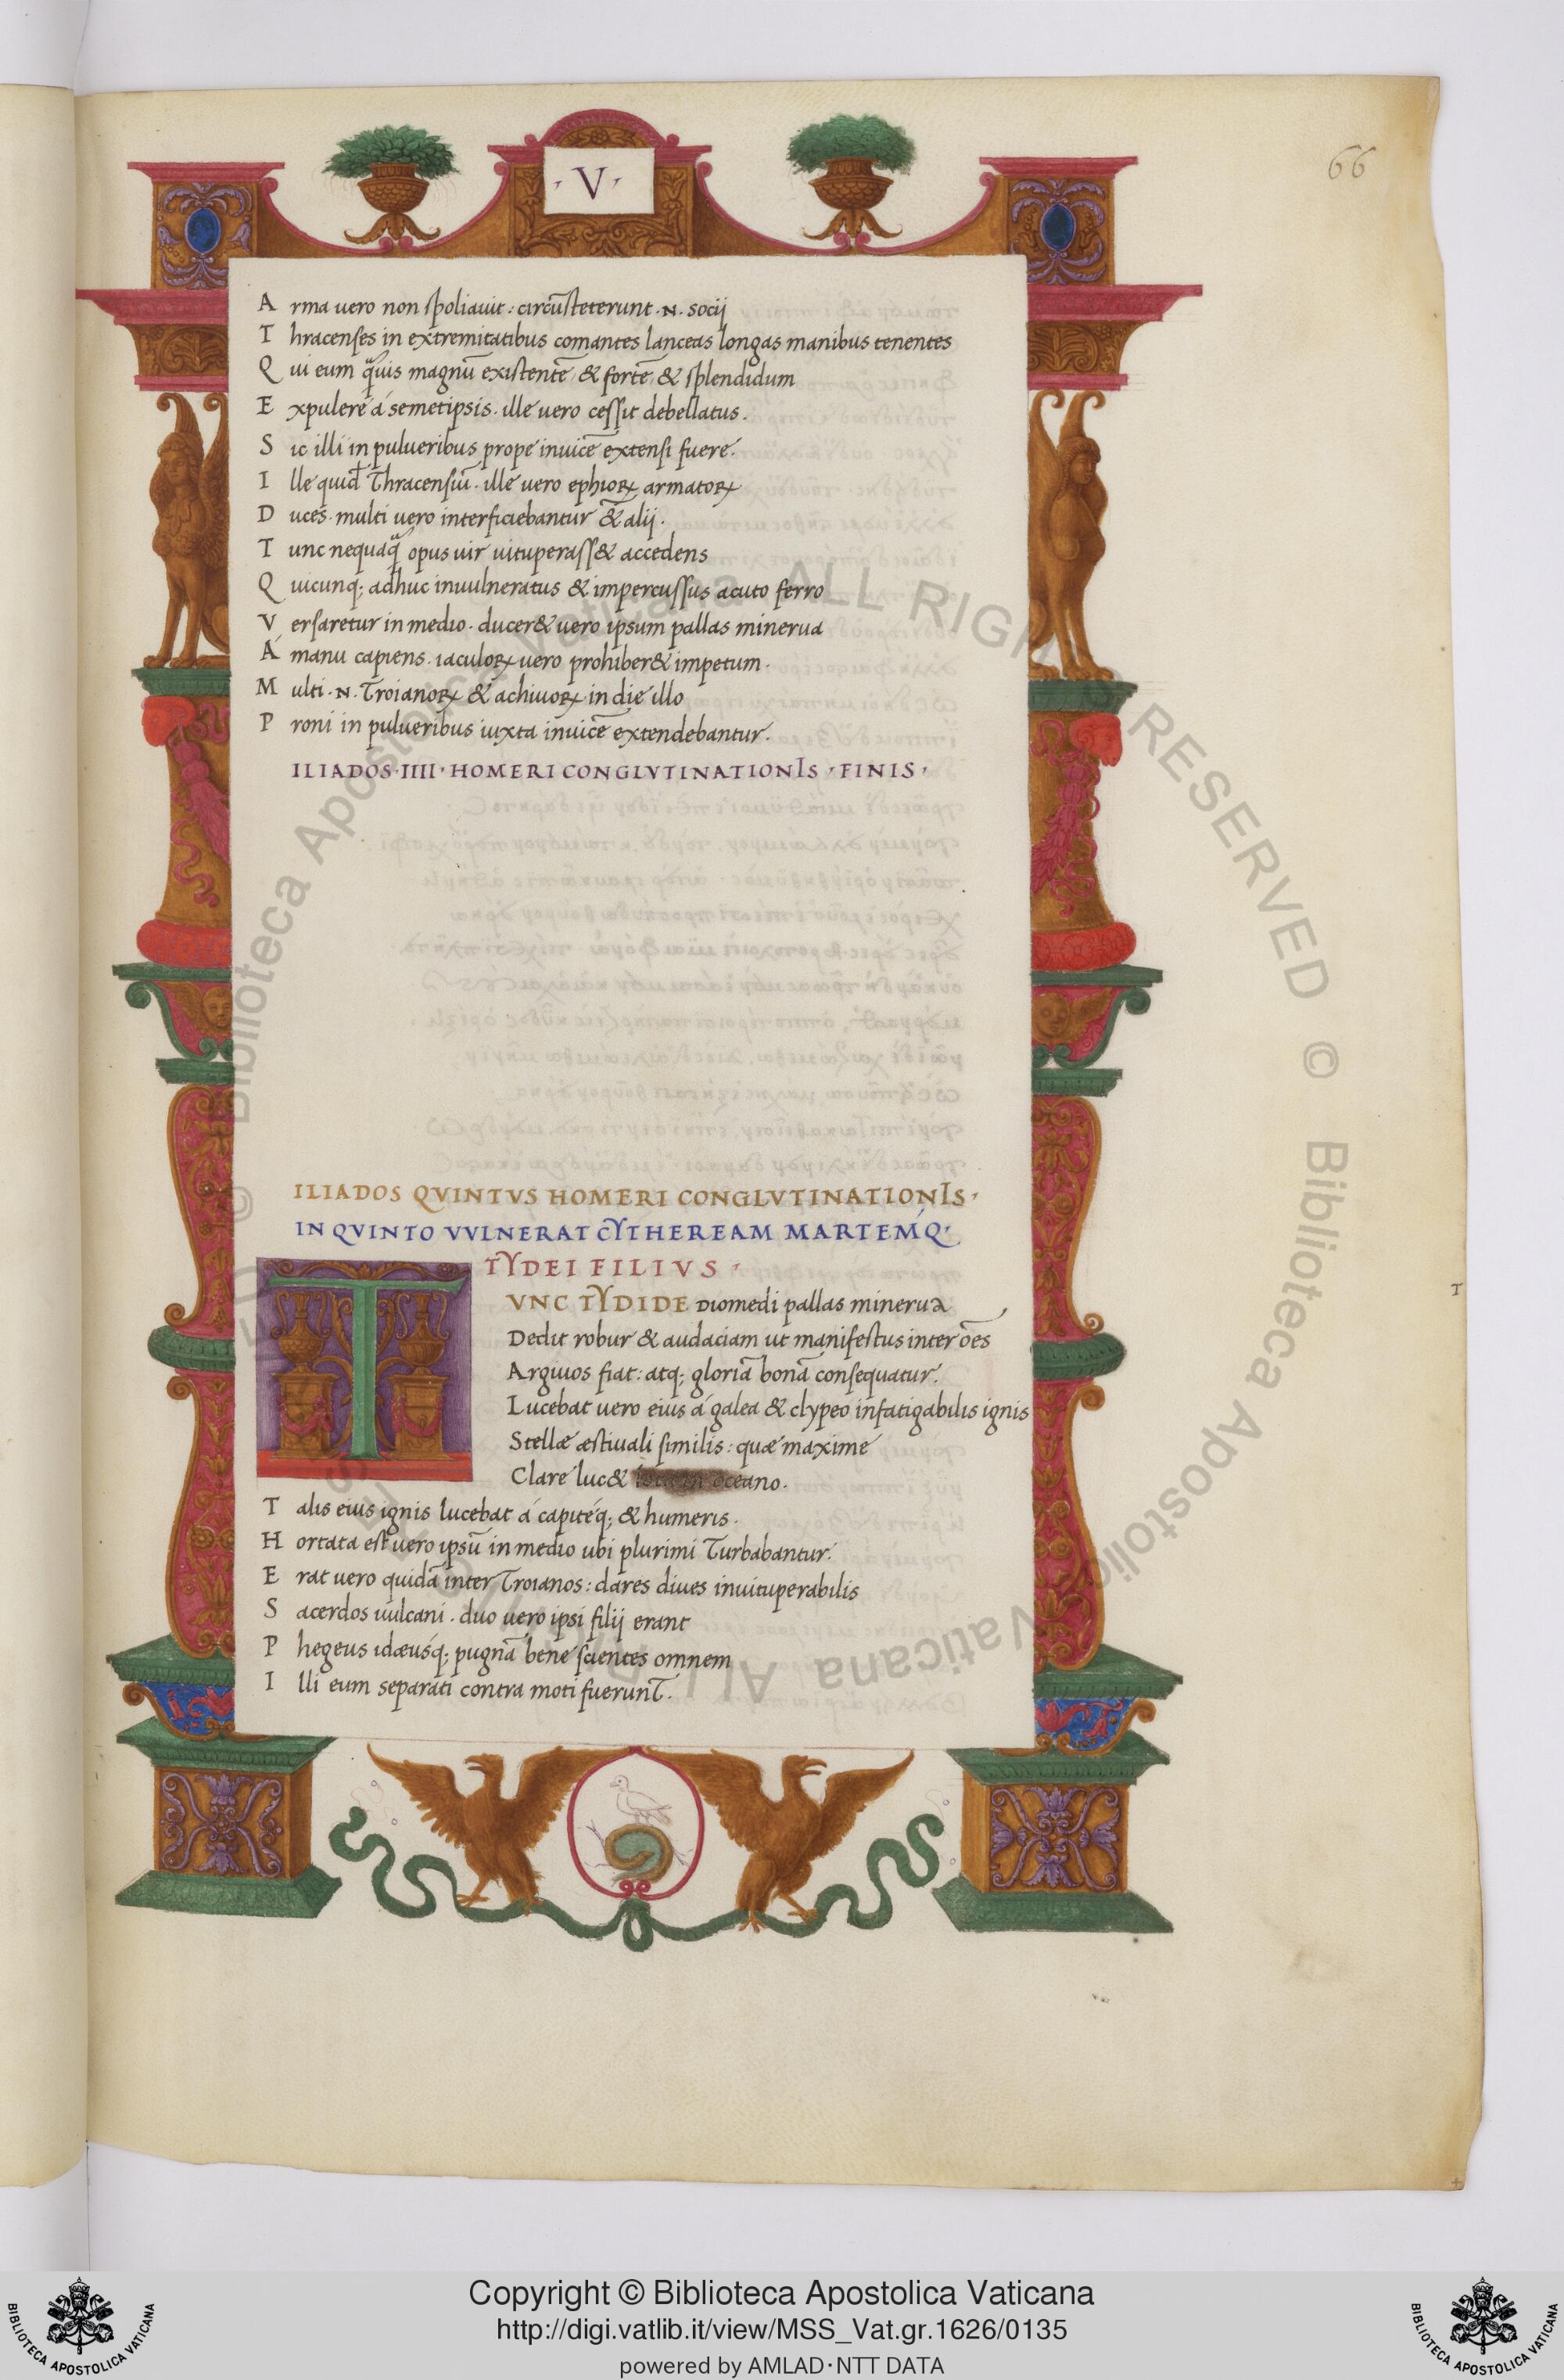 66
· V ·
A rma uero non spoliauit : circũsteterunt · N · socij
T hracenses in extremitatibus comantes lanceas longas manibus tenentes
Q ui eum quis magnũ existentẽ & fortẽ & splendidum
E xpulere á semetipsis · ille uero cessit debellatus .
S ic illi in pulueribus prope inuicẽ extensi fuere .
I lle quid Thracensiũ · ille uero ephioꝝ armatoꝝ
D uces · multi uero interficiebantur & alij .
T unc nequaq̃ opus uir uituperass& accedens
Q uicunq; adhuc inuulneratus & impercussus acuto ferro
V ersaretur in medio · ducer& uero ipsum pallas minerua
Á manu capiens · iaculoꝝ uero prohiber& impetum .
M ulti · N · Troianoꝝ & achiuoꝝ in die illo
P roni in pulueribus iuxta inuicẽ extendebantur .
ILIADOS · IIII · HOMERI CONGLVTINATIONIS · FINIS ·
ILIADOS QVINTVS HOMERI CONGLVTINATIONIS ·
IN QVINTO VVLNERAT CYTHEREAM MARTEMQ ·
TYDEI FILIVS ·
T VNC TYDIDE Diomedi pallas minerua
Dedit robur & audaciam ut manifestus inter õẽs
Argiuos fiat : atq; gloriã bonã consequatur .
Lucebat uero eius á galea & clypeo infatigabilis ignis
Stellæ æstiuali similis : quæ maxime
Clare luc& oceano .
T alis eius ignis lucebat á capiteq; & humeris .
H ortata est uero ipsũ in medio ubi plurimi Turbabantur .
E rat uero quidã inter Troianos : dares diues inuituperabilis
S acerdos uulcani . duo uero ipsi filij erant
P hegeus idæusq; pugnã bene scientes omnem
I lli eum separati contra moti fuerunt .
T
© Biblioteca Apostolica Vaticana ALL RIGHTS RESERVED
© Biblioteca Apostolica Vaticana ALL RIGHTS RESERVED
BIBLIOTECA APOSTOLICA VATICANA
Copyright © Biblioteca Apostolica Vaticana
http://digi.vatlib.it/view/MSS_Vat.gr.1626/0135
powered by AMLAD·NTT DATA
BIBLIOTECA APOSTOLICA VATICANA